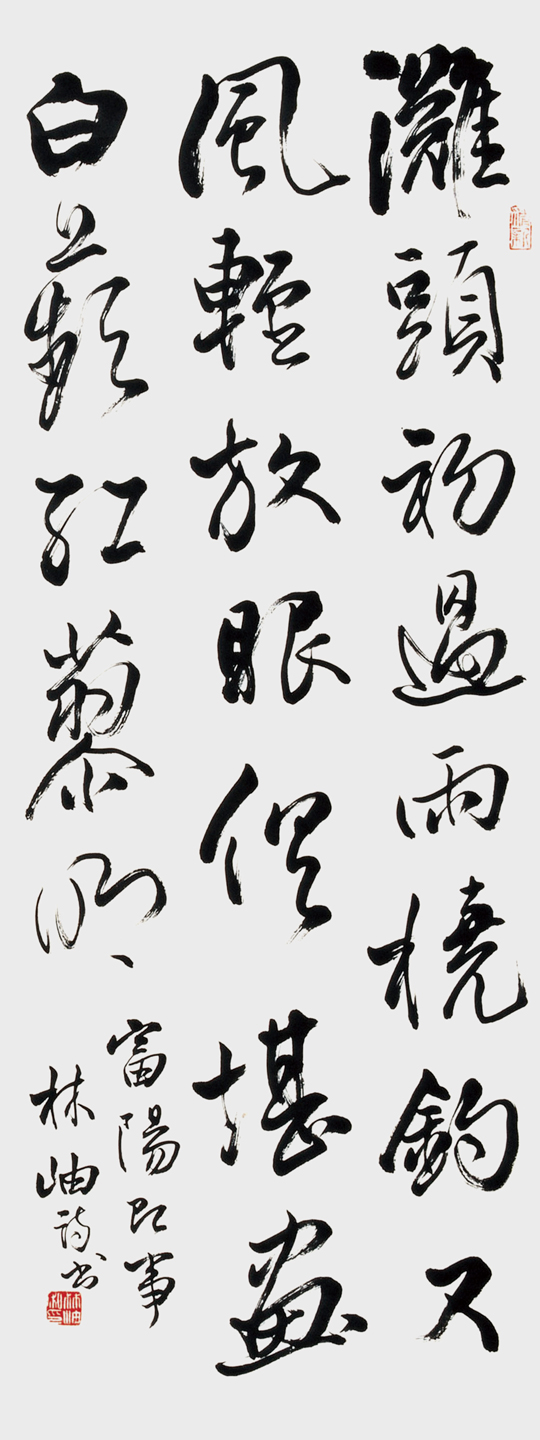 灘頭初過雨橈釣又
風輕放眼俱堪畫
白蘋紅蓼明
富陽即事
林岫詩書